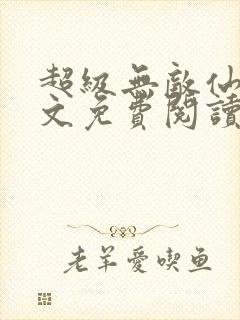 超級無敵仙
文免費閱讀
老羊愛喫鱼